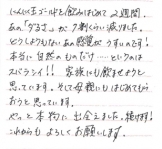 にんにく玉ゴールドを飲みはじめて2週間。
あの「ダルさ」が9割くらい減りました。
どうしようもないあの感覚がうすいのです!
本当に自然のものだけ……というのは
スバラシイ!! 家族にも飲ませようと
思っています。そして母親にもはじめてもら
おうと思っています。
やっと本物に出会えました。続けます!
これからもよろしくお願いします。